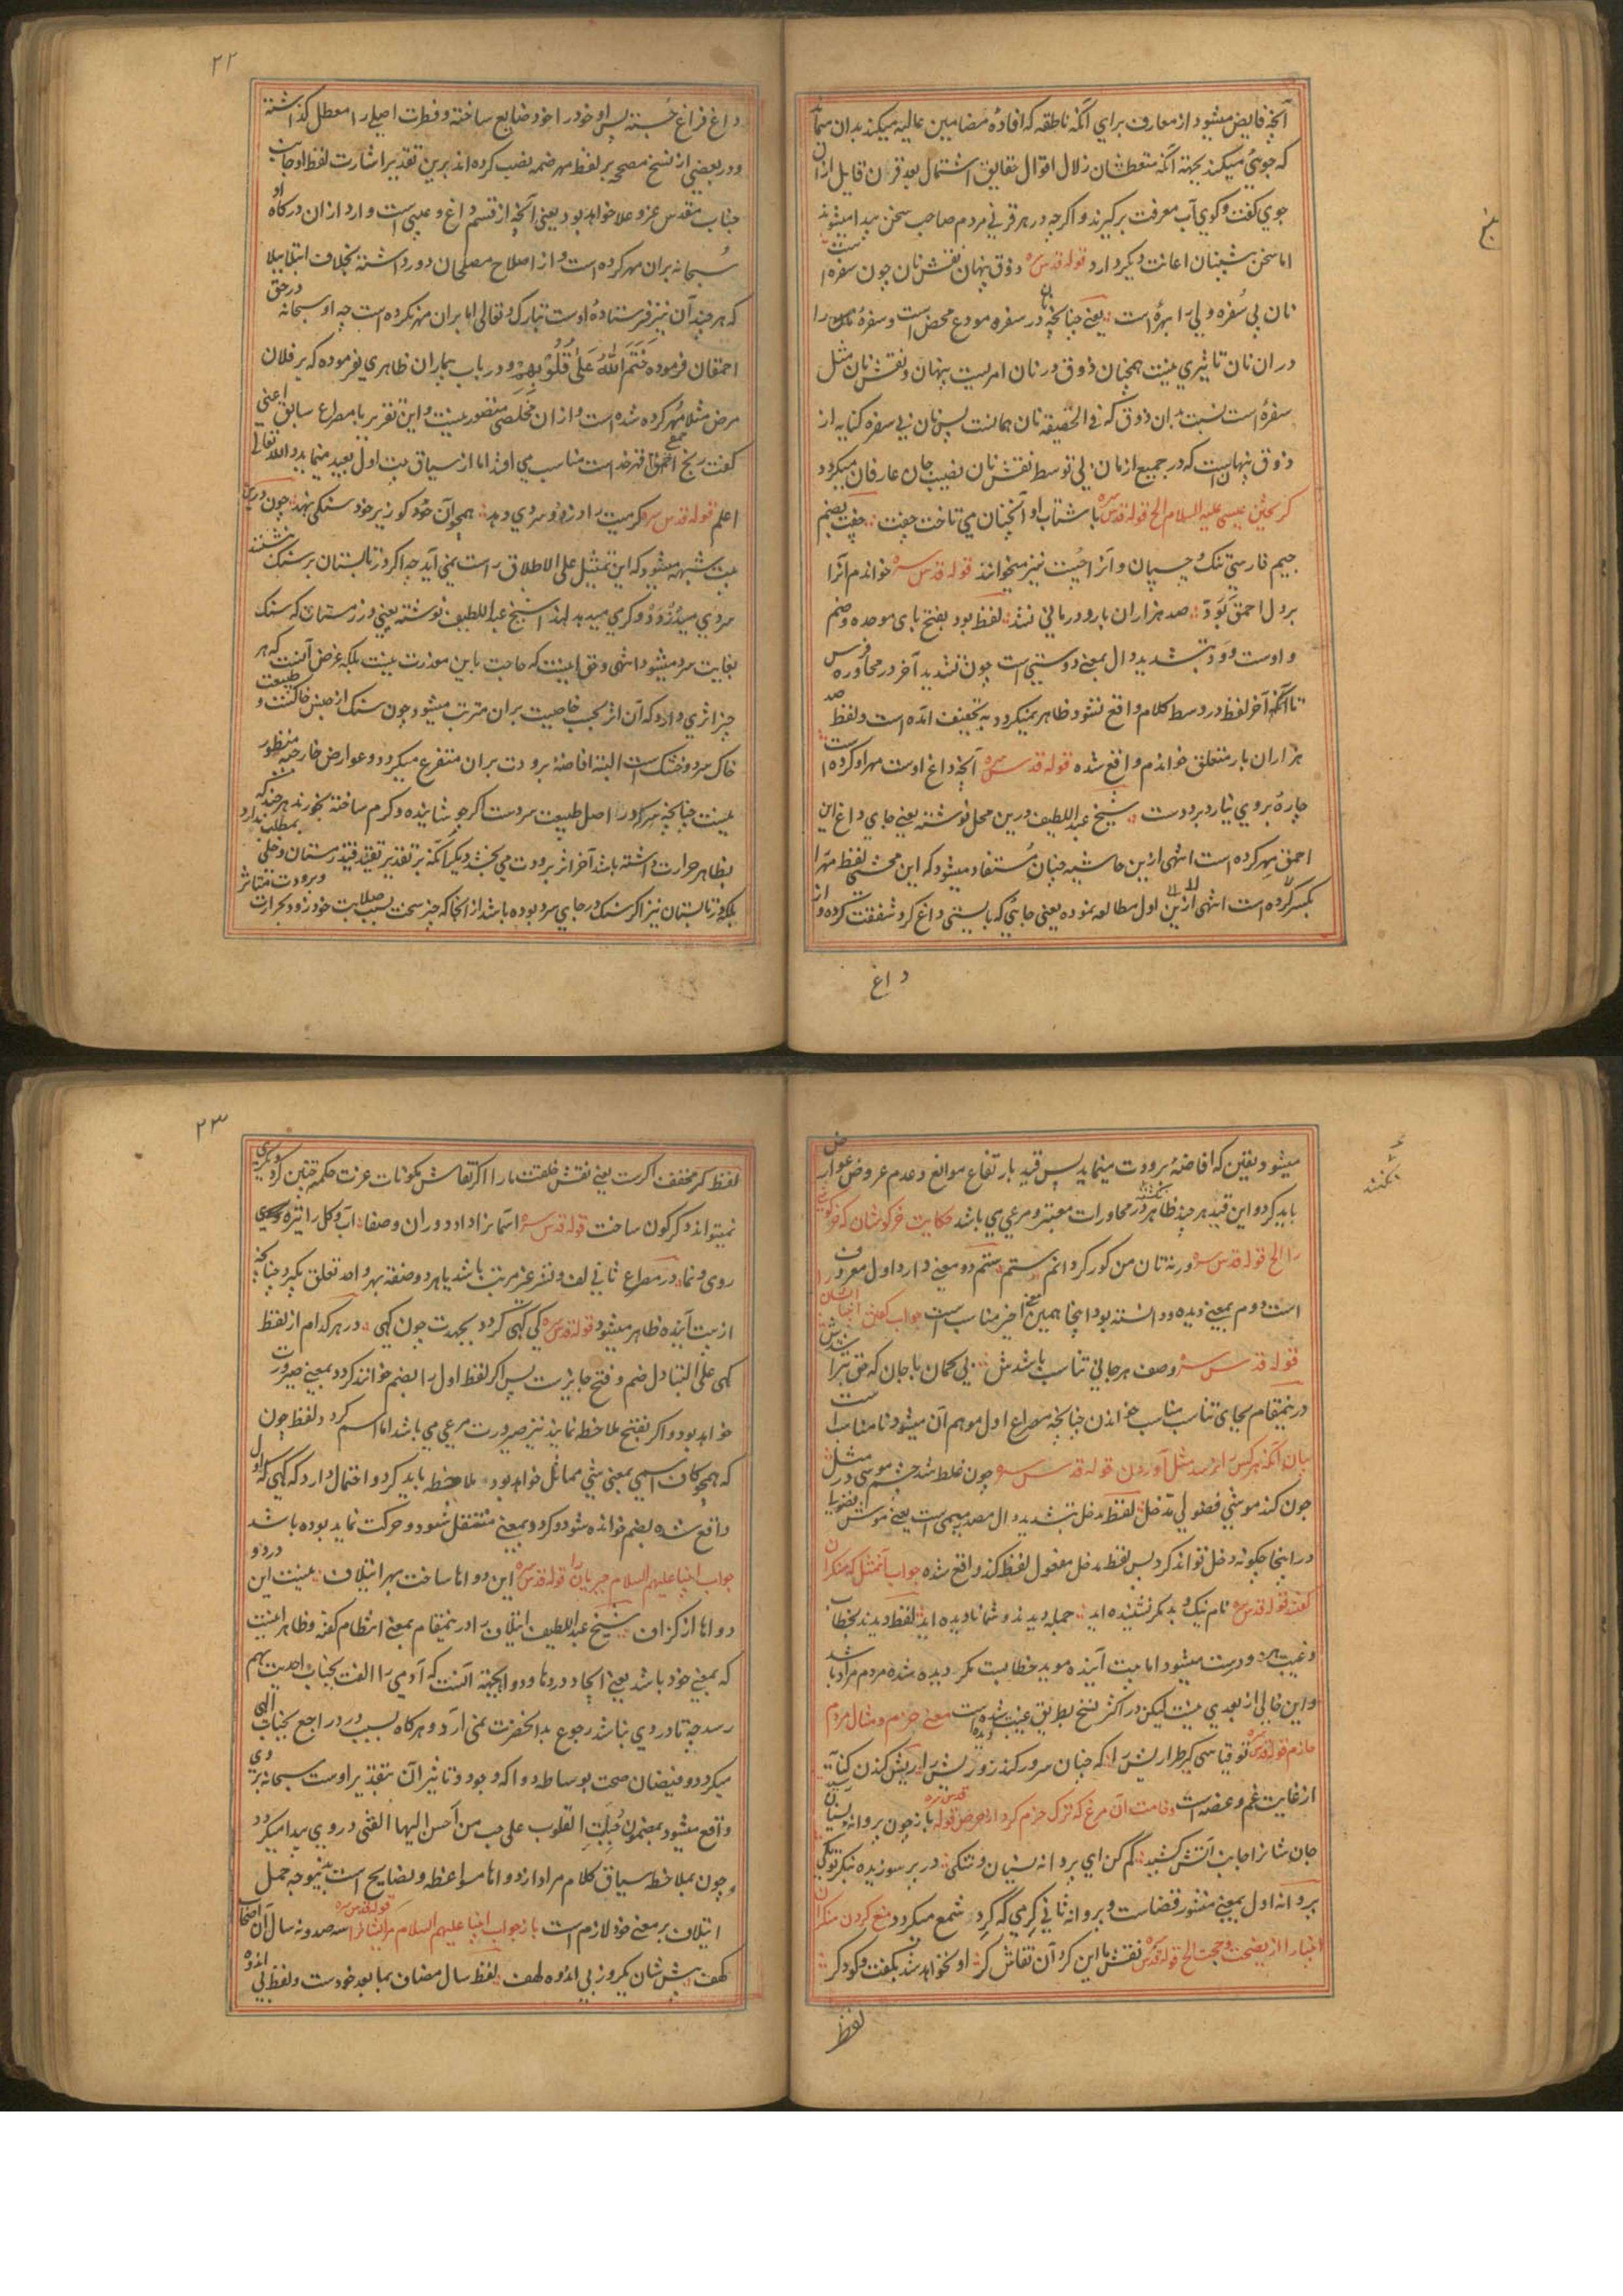 آنچه فایض میشود از معارف برای آنکه ناطقه که افادهٔ مضامین عالیه میکند بدان سماند
که جوئی میکند بجهته آنکه متعطشان زلال اقوال حقایق اشتمال بعد قرن قابل ازان
جوی کفت وکوی آب معرفت برکیرند و اکرچه در هر قرنی مردم صاحب سخن پیدا میشوند
اما سخن پیشینان اعانت دیکر دارد قوله قدس سره ذوق پنهان نقش نان چون سفره است
نان بی سفره ولی را بهره است یعنی چنانچه نان در سفره مودع محض است و سفرهٔ را
دران نان تاثیری نیست همچنان ذوق در نان امریست پنهان و نقش نان مثل
سفره است نسبت بدان ذوق که فی الحقیقه نان همانست پس نان بی سفره کنایه از
ذوق پنهانست که در جمیع ازمان بی توسط نقش نان نصیب جان عارفان میکردد
کریختن عیسی علیه السلام الخ قوله قدس سره با شتاب او آنچنان می تاخت جفت جفت بضم
جیم فارسی تنک و چسپان و آنرا چست نیز میخوانند قوله قدس سره خواندم آنرا
بر دل احمق بود صد هزاران بار و درمانی نشد لفظ بود بفتح بای موحده وضم
واوست و ود بتشدید دال بمعنی دوستی است چون تشدید آخر در محاوره فرس
تا آنکه آخر لفظ در وسط کلام واقع نشود ظاهر نمیکردد به تخفیف آمده است ولفظ صد
هزاران بار متعلق خواندم واقع شده قوله قدس سره آنچه داغ اوست مهر او کرده است
چارهٔ بروی نیارد برد دست شیخ عبد اللطیف درین محل نوشته یعنی جای داغ این
احمق مهر کرده است انتهی ازین حاشیه چنان مستفاد میشود که این محشی لفظ مهر را
بکسر کرده است انتهی ازین اول مطالعه نموده یعنی جائی که بایستی داغ کرد شفقت کرده و از
داغ
۲۲
داغ فراغ جسته پس او خود را خود ضایع ساخته و فطرت اصلی را معطل کذاشته
ودر بعضی از نسخ مصححه بر لفظ مهر ضمه نصب کرده اند برین تقدیر اشارت لفظ او جانب
جناب مقدس عز و علا خواهد بود یعنی آنچه از قسم داغ و عیبی است وارد ازان درکاه او
سبحانه بران مهر کرده است و از اصلاح مصلحان دور داشته بخلاف ابتلا بیلا
که هرچند آن نیز فرستادهٔ اوست تبارک و تعالی اما بران مهر نکرده است چه او سبحانه در حق
احمقان فرموده خَتَمَ اللهُ عَلَىٰ قُلُوبِهِمْ و در باب بیماران ظاهری نفرموده که بر فلان
مرض مثلا مهر کرده شده است و ازان مخلصی متصور نیست و این تقریر با مصراع سابق اعنی
کفت رنج احمقی قهر خداست مناسب می افتد اما از سیاق بیت اول بعید مینماید والله تعالی
اعلم قوله قدس سره کرمیت را دزدد و سردی دهد همچو آن خود کو زیر خود سنکی نهد چون درین
بیت شبهه میشود که این تمثیل علی الاطلاق راست نمی آید چه اکر در تابستان بر سنک نشنند
سردی میدزدد و کرمی میدهد لهذا شیخ عبد اللطیف نوشته یعنی در زمستان که سنک
بغایت سرد میشود انتهی وحق اینست که حاجت باین معذرت نیست بلکه غرض آنست که هر
چیز اثری دارد که آن اثر بحسب خاصیت بران مترتب میشود چون سنک از جنس خاکست و طبیعت
خاک سرد و خشک است البته افاضهٔ برودت بران متفرع میکردد و عوارض خارجیه منظور
نیست چنانچه سرکه در اصل طبیعت سردست اکر جوشانیده و کرم ساخته بخورند هرچند که
بظاهر حرارت داشته باشد آخر اثر برودت می بخشد دیکر آنکه بر تقدیر تقیید قید زمستان دخلی بمطلب ندارد
بلکه در تابستان نیز اکر سنک در جای سرد بوده باشد از انجا که چیز سخت بسبب صلابت خود زود بحرارت و برودت متاثر
میشود یقین که افاضهٔ برودت مینماید پس قید بارتفاع موانع و عدم عروض عوارض
باید کرد و این قید هرچند ظاهر نکنند در محاورات معتبر و مرعی می باشد حکایت خرکوشان که خرکوشی
را الخ قوله قدس سره ورنه تان من کور کردانم ستم ستم دو معنی دارد اول معروف
است دوم بمعنی دیده و دانسته بود اینجا همین معنی اخیر مناسب است جواب کفتن انبیا ایشان را
قوله قدس سره وصف هر جانی تناسب باشدش بی کمان با جان که حق بتراشدش
درینمقام بجای تناسب مناسب خواندن چنانچه مصراع اول موهم آن میشود نامناسب است
بیان آنکه هر کس را نرسد مثل آوردن قوله قدس سره چون غلط شد چشم موسی در مثل
چون کند موشی فضولی مدخل لفظ مدخل بتشدید دال مصدر میمی است یعنی موش فضول
در اینجا چکونه دخل تواند کرد پس لفظ مدخل مفعول لفظ کند واقع شده جواب آن مثل که منکران
کفتند قوله قدس سره نام نیک و بد مکر نشنیده اید جمله دیدند و شما نادیده اید لفظ دیدند بخطاب
وغیبت هر دو درست میشود اما بیت آینده موید خطابست مکر دیده شده مردم مراد باشد
واین خالی از بعدی نیست لیکن در اکثر نسخ بطریق غیبت دیده شده است معنی حزم و مثال مردم
حازم قوله قدس سره تو قیاسی کیر طراریش را که چنان سرور کند زو ریش را ریش کندن کنایت
از غایت غم و غصه است وخامت آن مرغ که ترک حزم کرد از حرص قوله قدس سره باز چون پروانه و نسیان رسید
جان شانرا جانب آتش کشید کم کن ای پروانه نسیان و شکی در پر سوزیده بنکر تو یکی
پروانه اول بمعنی منشور قضاست و پروانه ثانی کرمی که کرد شمع میکردد منع کردن منکران
انبیا را از نصیحت وحجت الخ قوله قدس سره نقش ما این کرد آن نقاش کر او نخواهد شد بکفت وکو دکر
لفظ
نکنند
۲۳
لفظ کر مخفف اکرست یعنی نقش خلقت ما را اکر نقاش مکونات عزت حکمته چنین کرد دیکری
نمیتواند دکرکون ساخت قوله قدس سره آسمانرا داد دوران وصفا آب و کل را تیره
روی ونما در مصراع ثانی لف و نشر غیر مرتب باشد یا هر دو صفة بهر واحد تعلق پکیرد چنانچه
از بیت آینده ظاهر میشود قوله قدس سره کی کهی کردد بجهدت چون کهی در هر کدام از لفظ
کهی علی التبادل ضم و فتح جایزست پس اکر لفظ اول را بضم خوانند کردد بمعنی صیرورت
خواهد بود و اکر بفتح ملاحظه نمایند نیز صیرورت مرعی می باشد اما اسم کردد لفظ چون
که همچو کاف اسمی بمعنی شی مماثل خواهد بود ملاحظه باید کرد و احتمال دارد که کهی که اول
واقع شده بضم خوانده شود و کردد بمعنی منتقل شود و حرکت نماید بوده باشد
جواب انبیا علیهم السلام جبریان را قوله قدس سره این دواها ساخت بهر ایتلاف نیست این درد و
دواها از کزاف شیخ عبد اللطیف ایتلاف را درینمقام بمعنی انتظام کفته و ظاهر اینست
که بمعنی خود باشد یعنی ایجاد دردها و دواها بجهته آنست که آدمی را الفت بجناب احدیت بهم
رسد چه تا دردی نباشد رجوع بدانحضرت نمی آرد و هرکاه بسبب درد راجع بجناب الهی
میکردد و فیضان صحت بوساطه دوا که وجود و تاثیر آن بتقدیر اوست سبحانه بر وی
واقع میشود بمضمون جُبِلَتِ القلوب علی حب من أحسن الیها الفتی در وی پیدا میکردد
وچون بملاحظه سیاق کلام مراد از دواها مواعظ و نصایح است بنیوجه حمل
ایتلاف بر معنی خود لازم است باز جواب انبیا علیهم السلام مر ایشانرا قوله قدس سره سه صد و نه سال آن اصحاب
کهف پیش شان یکروز بی اندوه لهف لفظ سال مضاف بما بعد خودست ولفظ بی اندوه